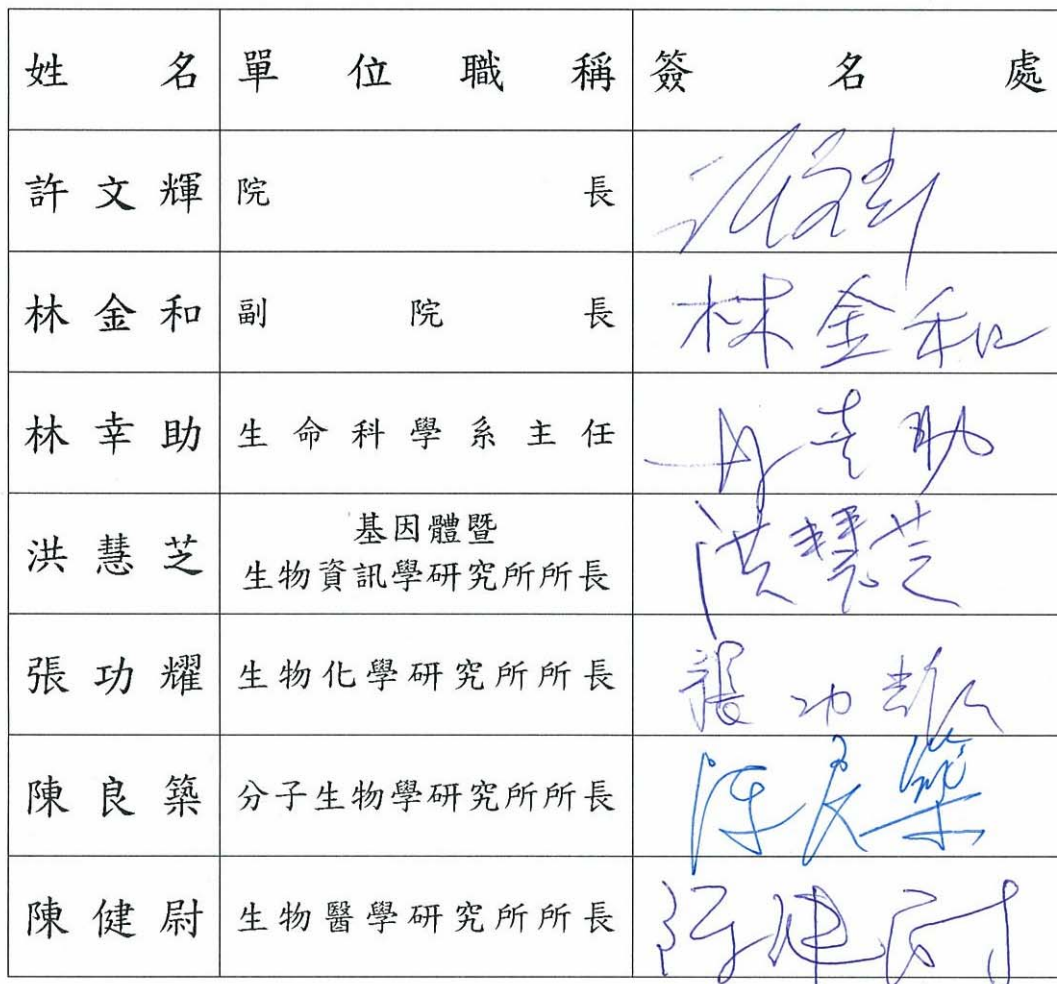 姓名 單位職稱 簽名處
許文輝 院長 許文輝
林金和 副院長 林金和
林幸助 生命科學系主任 林幸助
洪慧芝 基因體暨 洪慧芝
生物資訊學研究所所長
張功耀 生物化學研究所所長 張功耀
陳良築 分子生物學研究所所長 陳良築
陳健尉 生物醫學研究所所長 陳健尉